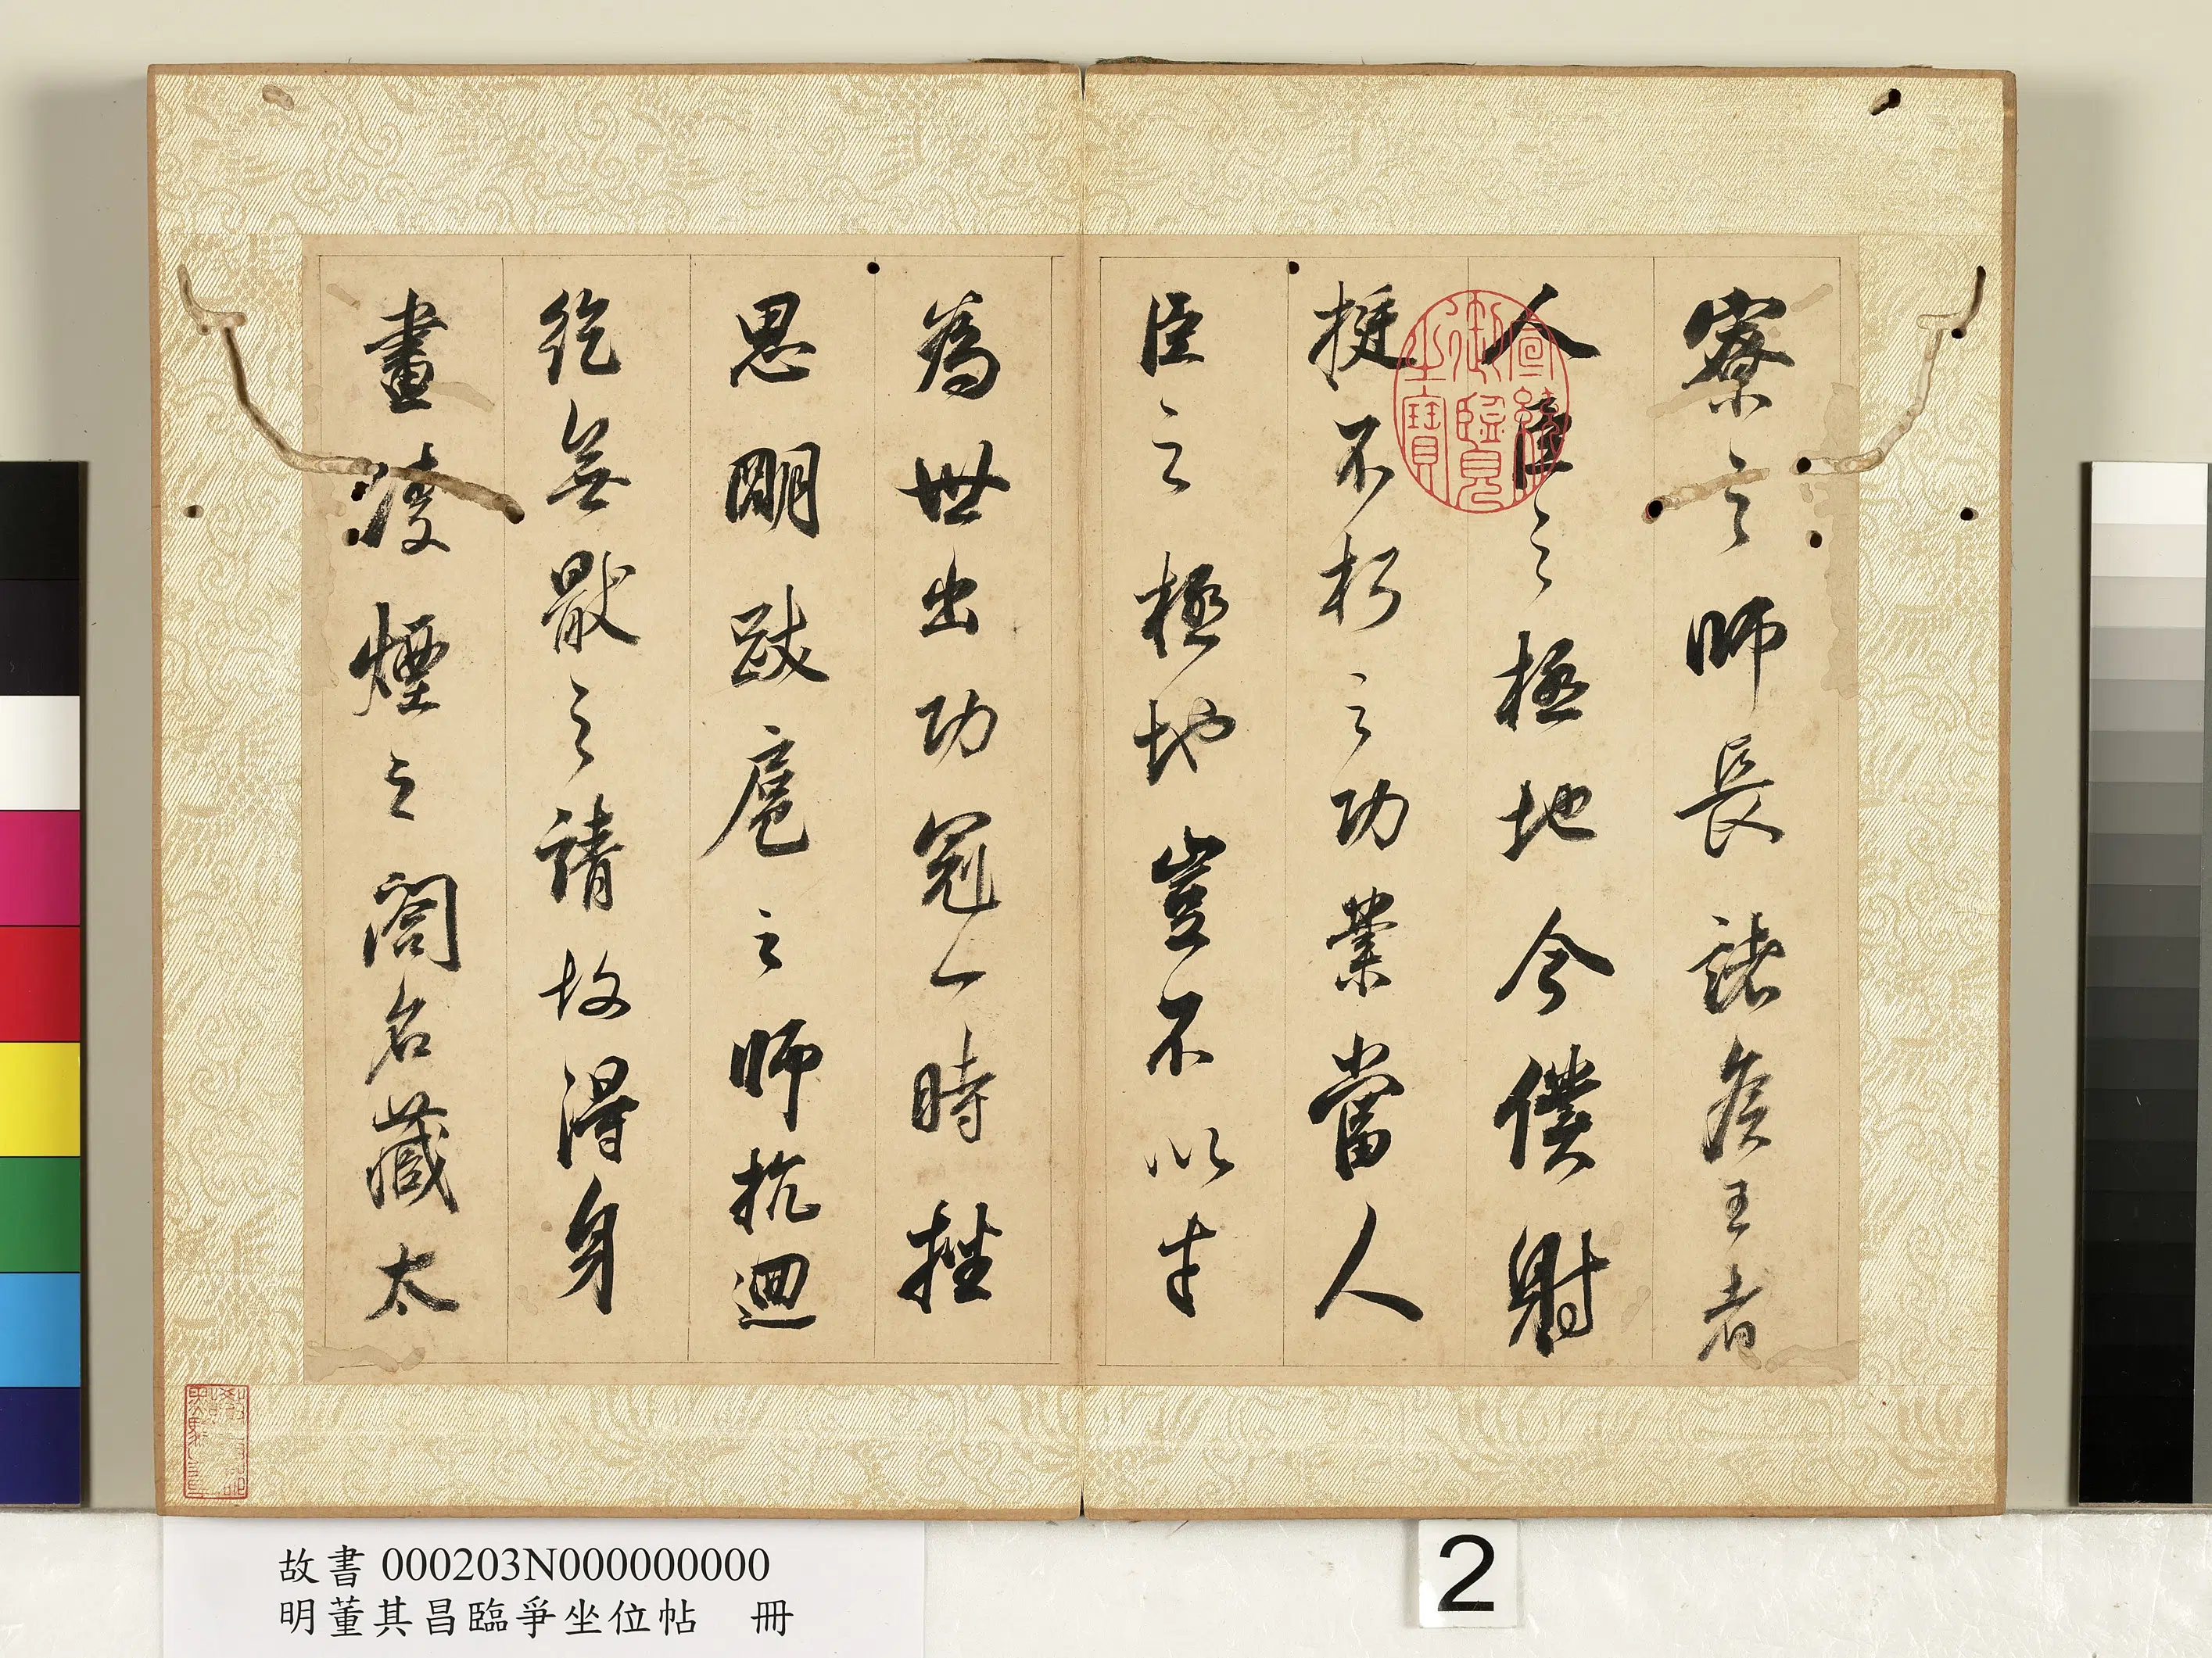 寮之師長諸侯王者
人臣之極地今僕射
挺不朽之功業當人
臣之極地豈不以才
為世出功冠一時挫
思明跋扈之師抗迴
紇無猒之請故得身
畫凌煙之閣名藏太
宣統御覽之寶
故書 000203N000000000
明董其昌臨爭坐位帖 冊
2